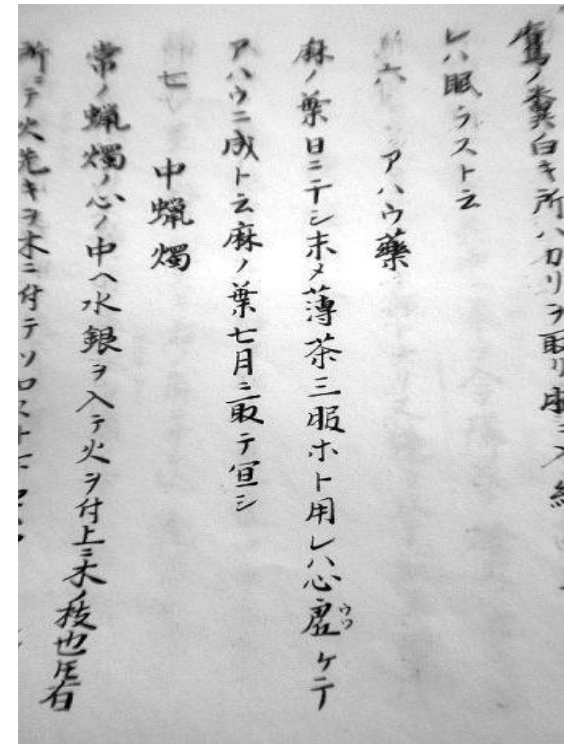 鷹ノ糞白キ所ハカリヲ取リ
レハ眠ラスト云
六 アハウ藥
麻ノ葉日ニテシ末メ薄茶三服ホト用レハ心虚ウツケテ
アハウニ成ト云麻ノ葉七月ニ取テ宜シ
七 中蠟燭
常ノ蠟燭ノ心ノ中ヘ水銀ヲ入テ火ヲ付上ニ木ノ枝也
所ニテ火先キヲ木ニ付テ